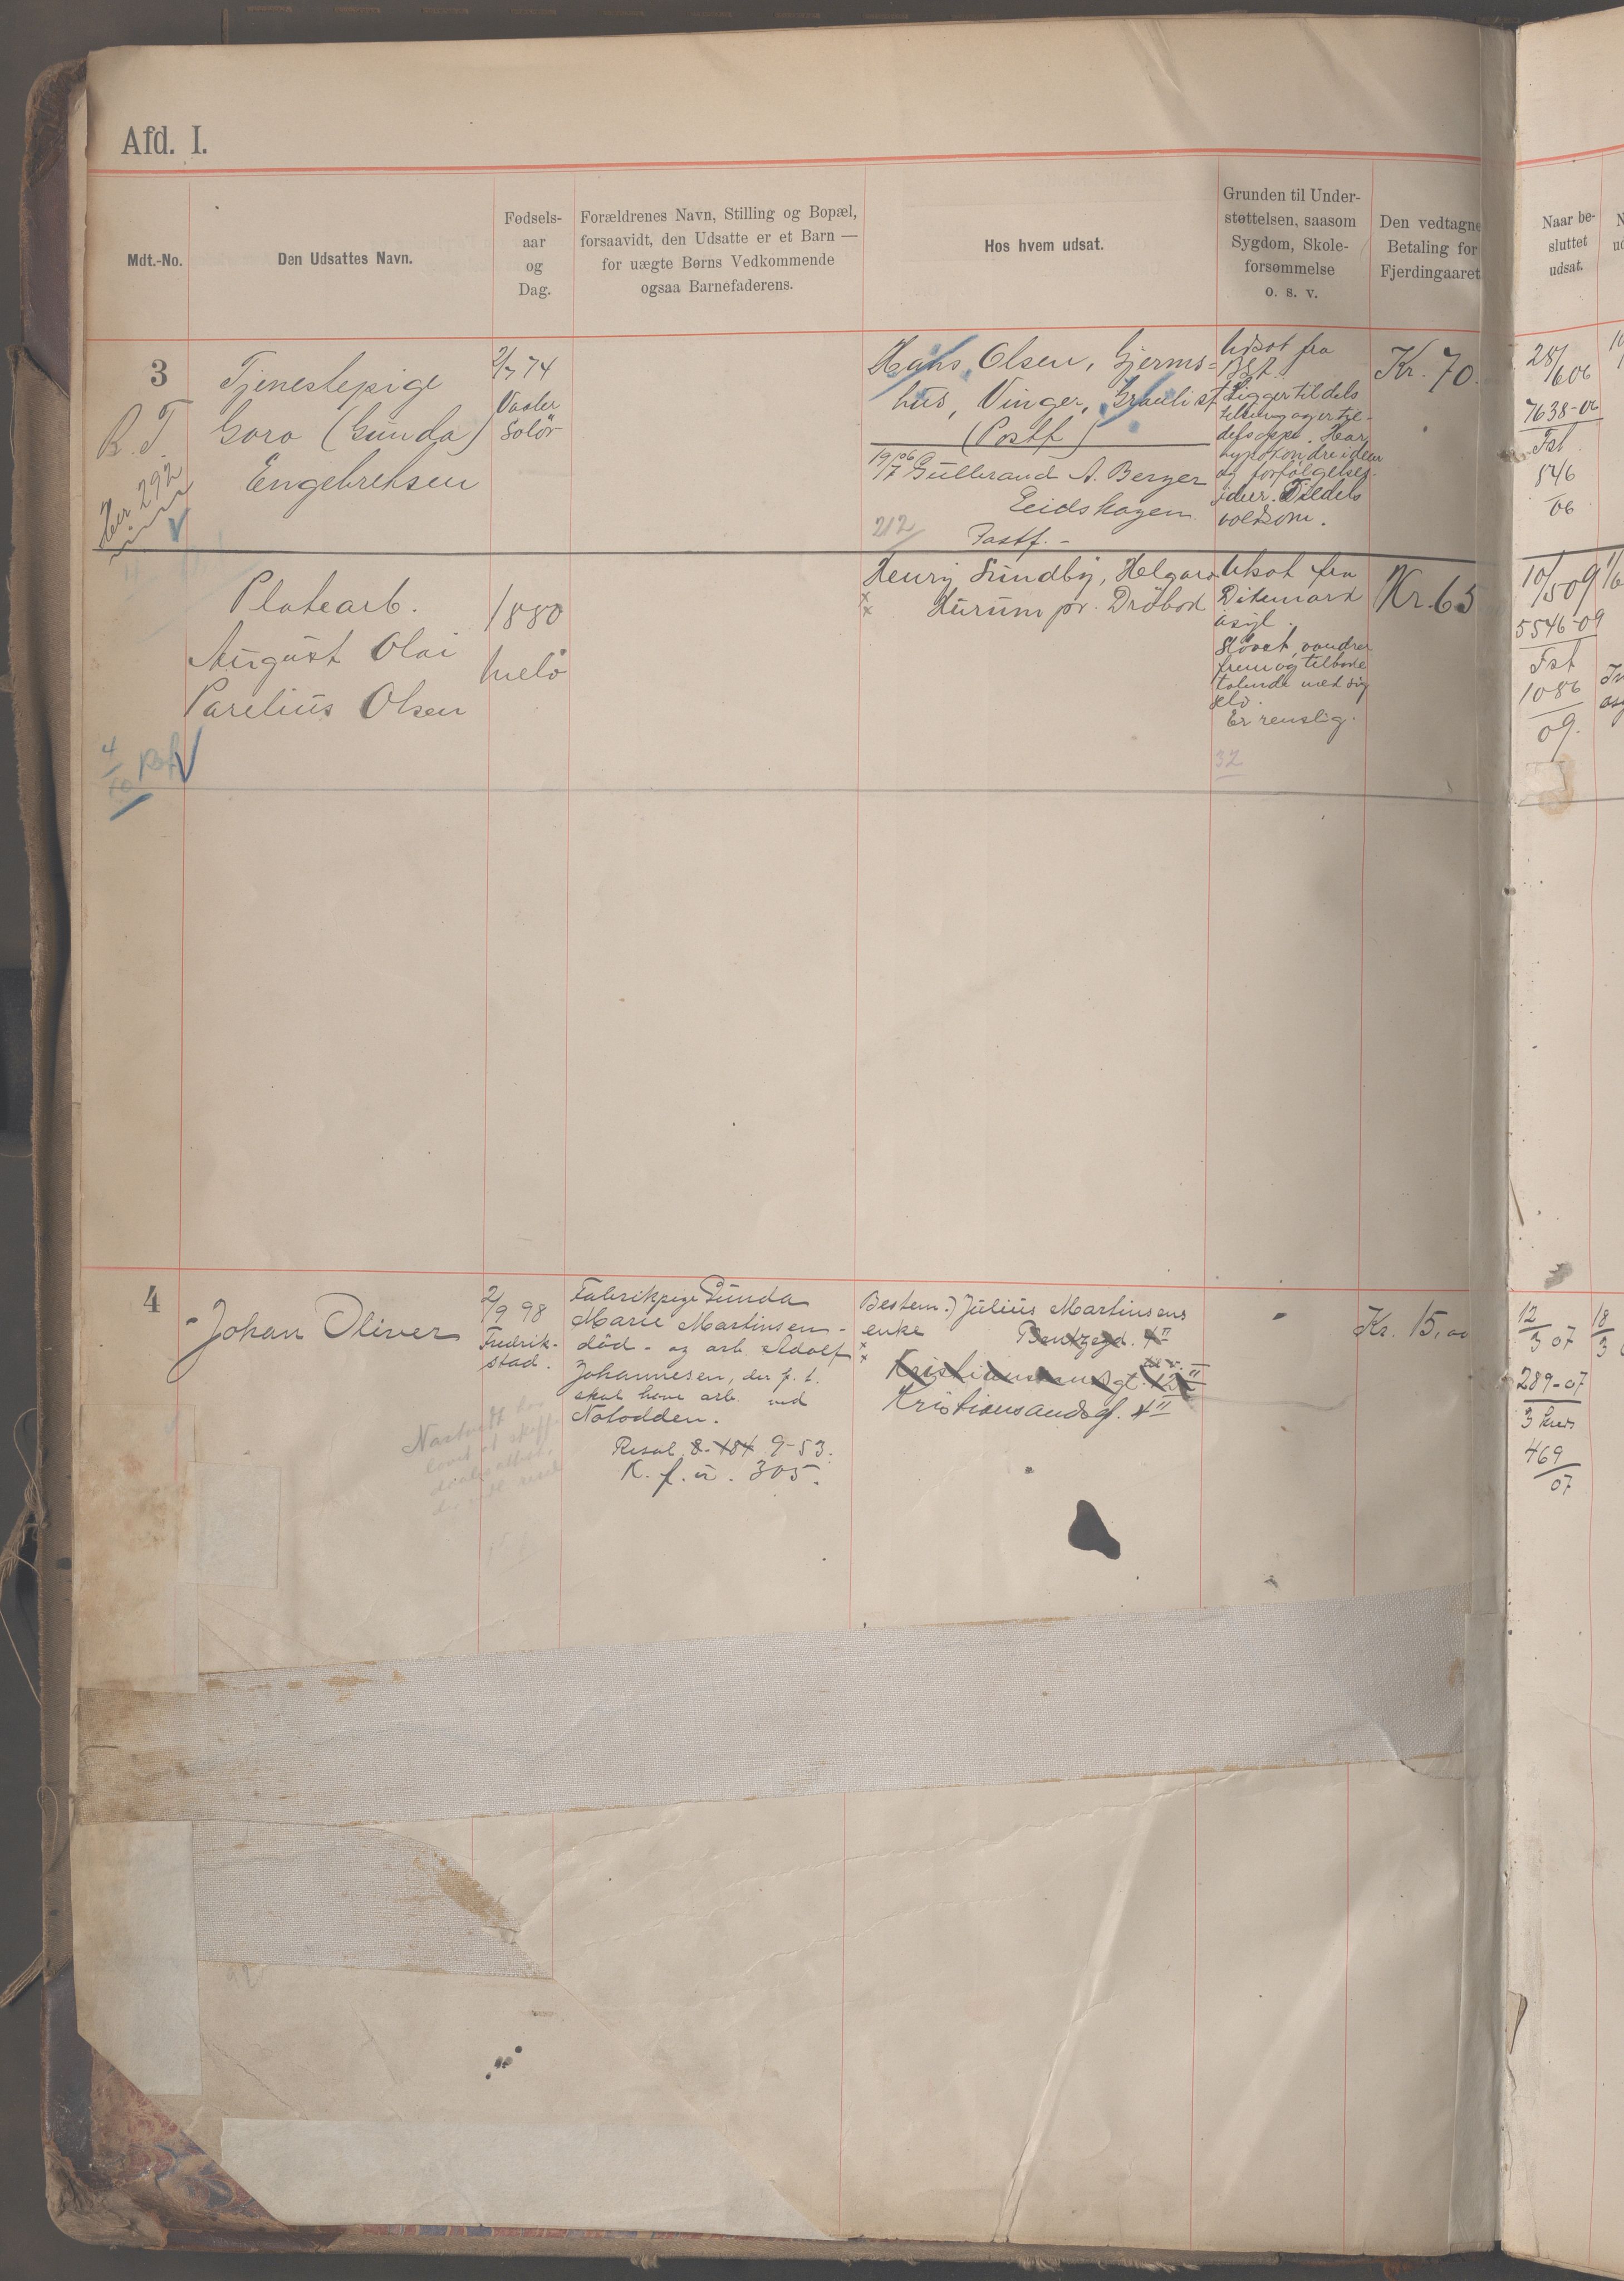 Afd. I.
Mdt.-No.
Den Udsattes Navn.
Fødsels-
aar
og
Dag.
Forældrenes Navn, Stilling og Bopæl,
forsaavidt, den Udsatte er et Barn —
for uægte Børns Vedkommende
ogsaa Barnefaderens.
Hos hvem udsat.
Grunden til Under-
støttelsen, saasom
Sygdom, Skole-
forsømmelse
o. s. v.
Den vedtagne
Betaling for
Fjerdingaaret
Naar be-
sluttet
udsat.
3
R. T.
292
Tjenestepige
Goro (Gunda)
Engebretsen
2/7 74
Vaaler
Solør
Hans Olsen, Gjerms=
hus, Vinger,
(Postf)
19/7 06 Gulbrand A. Berger
Eidskogen
212
Postf. -
Udsat fra
Ligger til dels
og forfølgelses-
ideer. Tildels
voldsom.
Kr. 70.
28/6 06
7638-06
Fst
546
06
Platearb.
August Olai
Parelius Olsen
1880
Henry Sundby, Helgaro
Hurum pr. Drøbak
Utsat fra
Dikemark
asyl.
Sløvet, vandrer
frem og tilbake
talende med sig
selv.
Er renslig.
32
Kr. 65
10/5 09
5546-09
Fst
1086
09.
4
Johan Oliver
2/9 98
Fredrik-
stad.
Fabrikpige Gunda
Marie Martinsen -
død - og arb. Adolf
Johannesen, der f. t.
skal have arb. ved
Notodden.
Resol. 8-184 9-53.
K. f. u. 305.
Bestem.) Julius Martinsens
enke Bentzegd. 4 II
Kristiansandsgt. 4 II
Kr. 15,00
12/3 07
289-07
3 Kreds
469
07